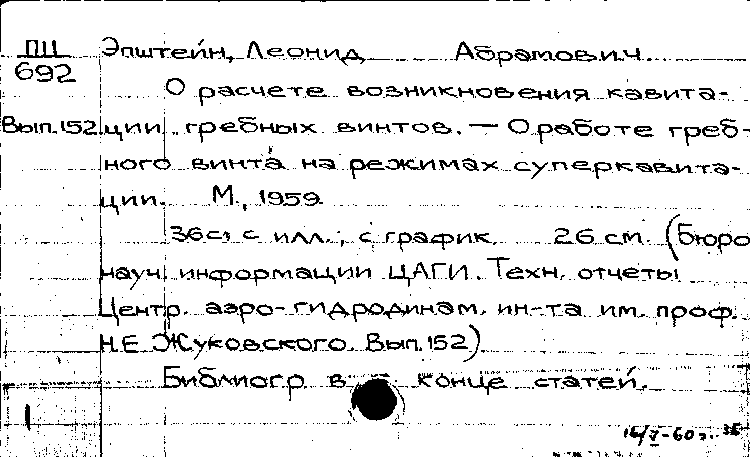 ПЦ
692
Эпштейн, Леонид Абрамович.
О расчете возникновения кавита-
Вып.152 ции гребных винтов. — О работе греб-
ного винта на режимах суперкавита-
ции. М., 1959
36 с. с илл.; с график. 26 см. (Бюро
науч. информации ЦАГИ. Техн. отчеты
Центр. аэро-гидродинам. ин-та им. проф.
Н.Е Жуковского. Вып.152)
Библиогр в конце статей.
1
16/V-60г.